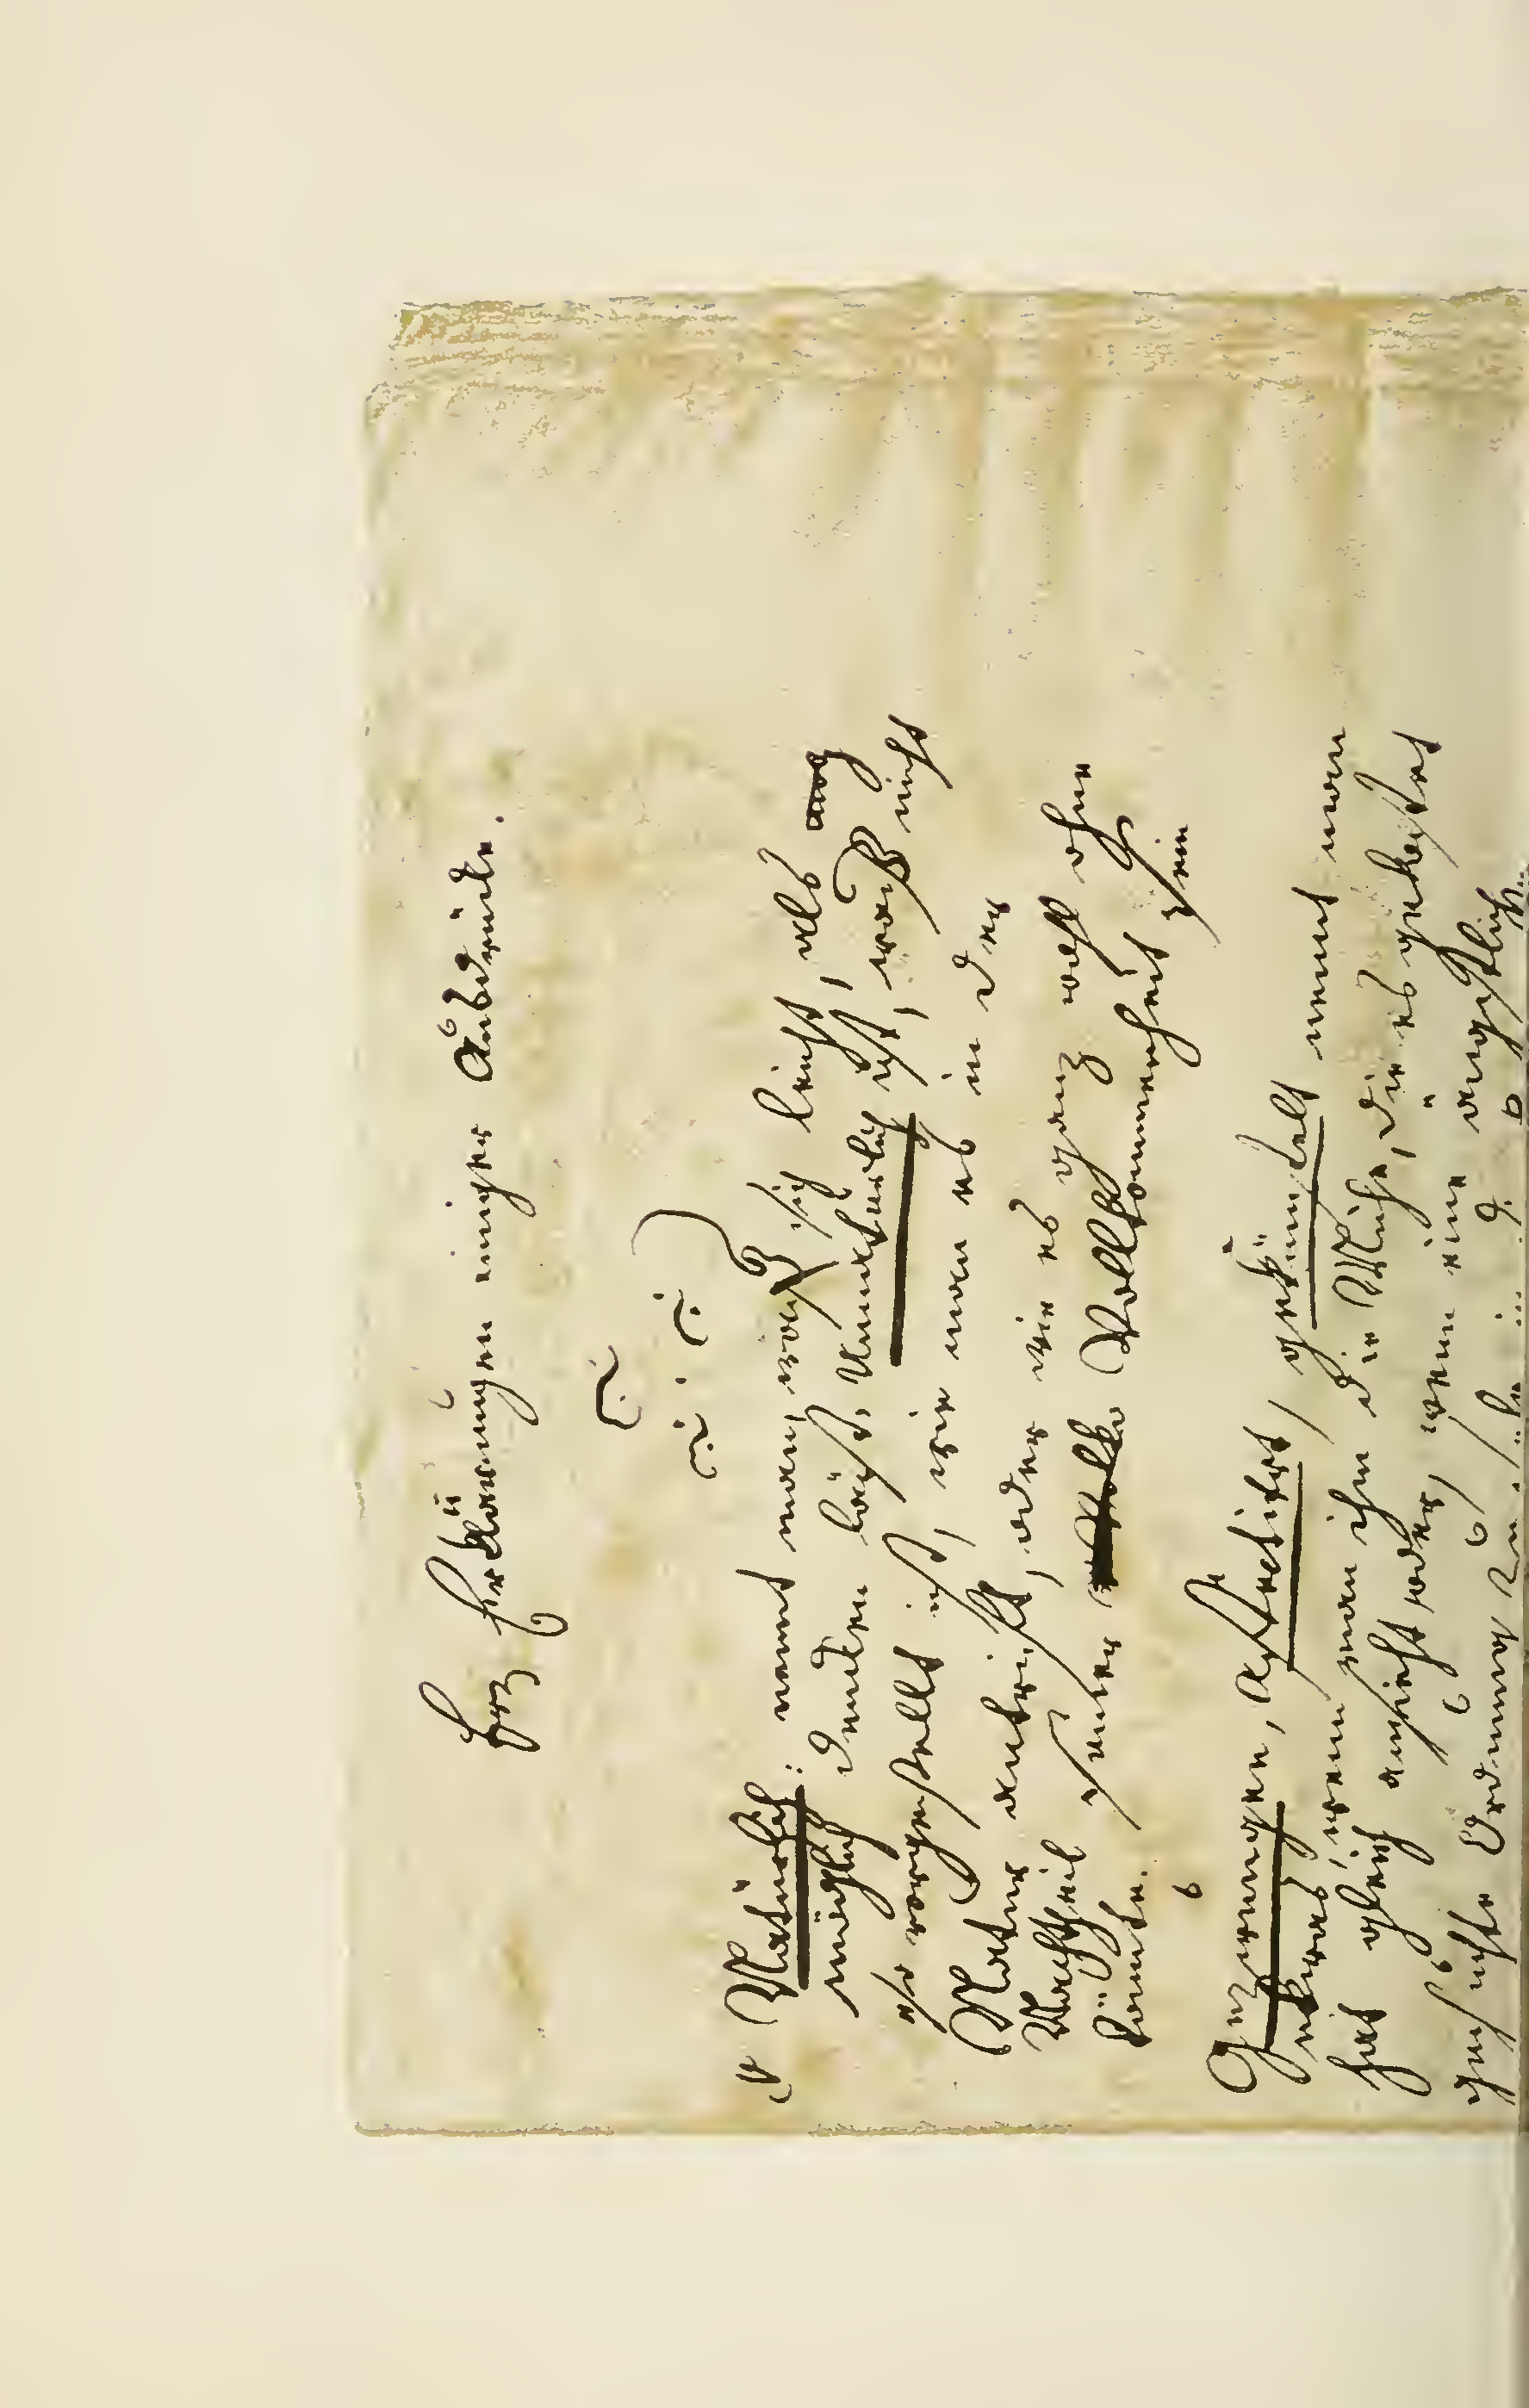 Erklärungen einiger Ausdrücke.
Natürlich: nennt man, was sich leicht, als
möglich denken läßt. Unnatürlich ist, was nicht
so vorgestellt ist, wie man es in der
Natur antrift, oder wie es ganz wohl ohne
Nachtheil seiner Vollkommenheit seyn
könnte.
Gezwungen, affectirt, gekünstelt nennt man
etwas, wenn man ihm die Mühe, die es gekostet
hat gleich ansieht oder, wenn eine ängstlich
gesuchte Ordnung